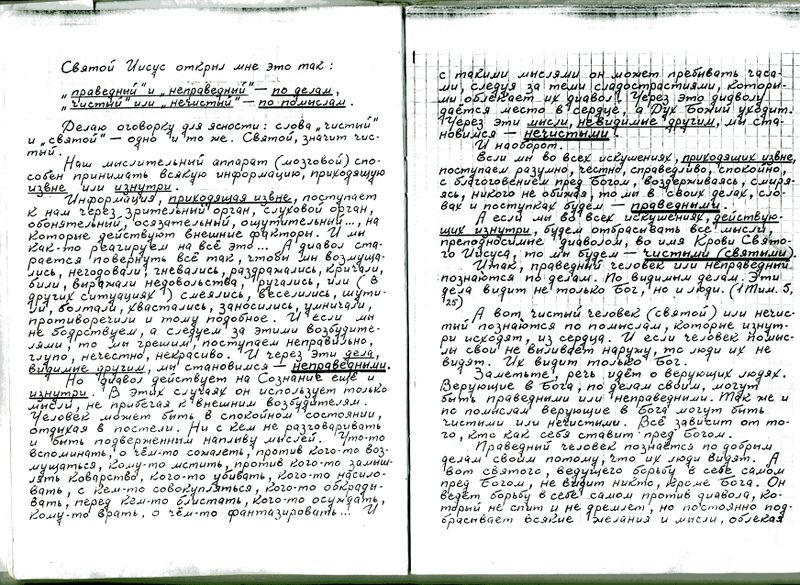 Святой Иисус открыл мне это так:
„праведный" и „неправедный" — по делам,
„чистый" или „нечистый" — по помыслам.
Делаю оговорку для ясности: слова „чистый"
и „святой" — одно и то же. Святой, значит чис-
тый.
Наш мыслительный аппарат (мозговой) спо-
собен принимать всякую информацию, приходящую
извне или изнутри.
Информация, приходящая извне, поступает
к нам через зрительный орган, слуховой орган,
обонятельный, осязательный, ощутительный..., на
которые действуют внешние факторы. И мы
как-то реагируем на всё это... А диавол ста-
рается повернуть всё так, чтобы мы возмуща-
лись, негодовали, гневались, раздражались, кричали,
били, выражали недовольства, ругались, или (в
других ситуациях) смеялись, веселились, шути-
ли, болтали, хвастались, заносились, умничали,
противоречили и тому подобное. И если мы
не бодрствуем, а следуем за этими возбудите-
лями, то мы грешим, поступаем неправильно,
глупо, нечестно, некрасиво. И через эти дела,
видимые другим, мы становимся — неправедными.
Но диавол действует на Сознание ещё и
изнутри. В этих случаях он использует только
мысли, не прибегая к внешним возбудителям.
Человек может быть в спокойном состоянии,
отдыхая в постели. Ни с кем не разговаривать
и быть подверженным наплыву мыслей. Что-то
вспоминать, о чём-то сожалеть, против кого-то воз-
мущаться, кому-то мстить, против кого-то замыш-
лять коварство, кого-то убивать, кого-то насило-
вать, с кем-то совокупляться, кого-то обкрады-
вать, перед кем-то блистать, кого-то осуждать,
кому-то врать, о чём-то фантазировать... И
с такими мыслями он может пребывать часа-
ми, следуя за теми сладострастиями, которы-
ми облекает их диавол. Через это диаволу
даётся место в сердце, а Дух Божий уходит.
Через эти мысли, невидимые другим, мы ста-
новимся — нечистыми!
И наоборот.
Если мы во всех искушениях, приходящих извне,
поступаем разумно, честно, справедливо, спокойно,
с благоговением пред Богом, воздерживаясь, смиря-
ясь, никого не обижая, то мы в своих делах, сло-
вах и поступках будем — праведными.
А если мы во всех искушениях, действую-
щих изнутри, будем отбрасывать все мысли,
преподносимые диаволом, во имя Крови Свято-
го Иисуса, то мы будем — чистыми (святыми).
Итак, праведный человек или неправедный
познаются по делам. По видимым делам. Эти
дела видит не только Бог, но и люди. (1 Тим. 5,
25)
А вот чистый человек (святой) или нечис-
тый познаются по помыслам, которые изнут-
ри исходят, из сердца. И если человек помыс-
лы свои не выливает наружу, то люди их не
видят. Их видит только Бог.
Заметьте, речь идёт о верующих людях.
Верующие в Бога, по делам своим, могут
быть праведными или неправедными. Так же и
по помыслам верующие в Бога могут быть
чистыми или нечистыми. Всё зависит от то-
го, кто как себя ставит пред Богом.
Праведный человек познаётся по добрым
делам своим потому, что их люди видят. А
вот святого, ведущего борьбу в себе самом
пред Богом, не видит никто, кроме Бога. Он
ведёт борьбу в себе самом против диавола, ко-
торый не спит и не дремлет, но постоянно под-
брасывает всякие желания и мысли, облекая